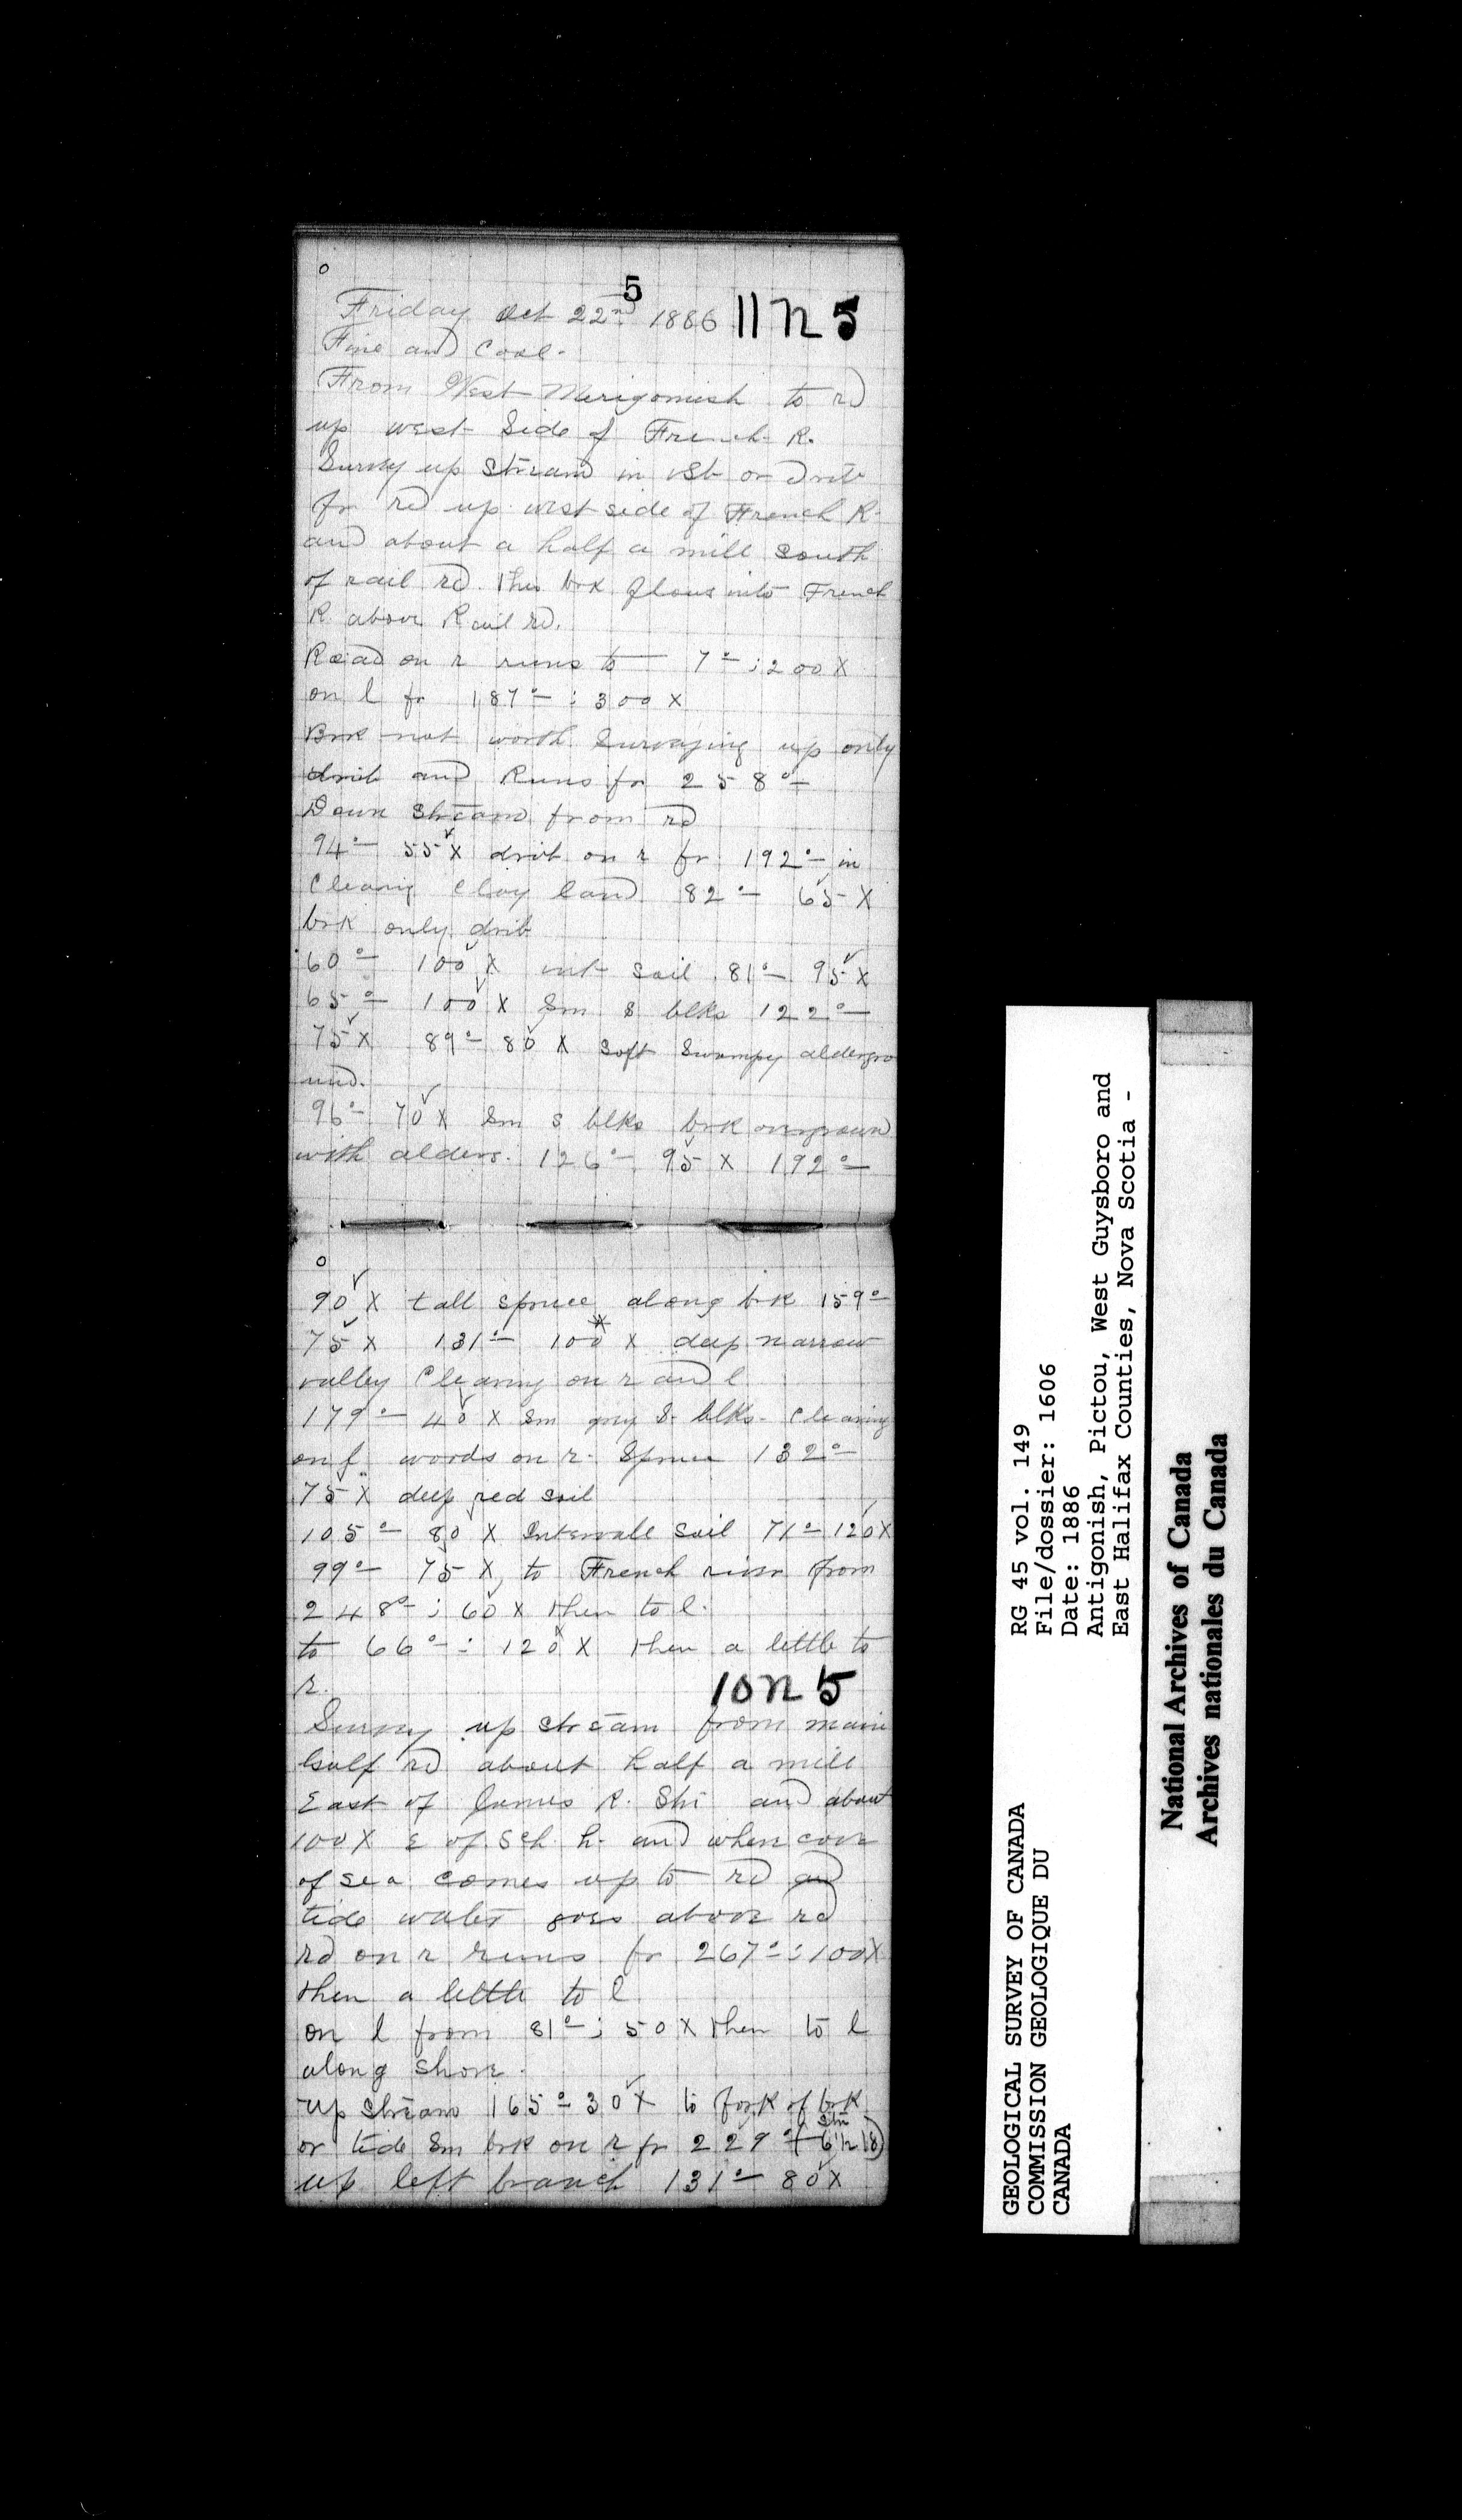 5
Friday Oct 22nd 1886 11 n 5
Fine and Cool.
From West Merigomish to rd
up west Side of French R.
Survey up Stream in or drib
fr rd up west side of French R.
and about a half a mill South
of rail rd. This brk flows into French
R above Rail rd.
Road on r runs to 7° : 200 X
on l fr 187° : 300 X
Brk not worth Surveying up only
drib and Runs fr 258°
Down Stream from rd
94° 55 X drib on r fr 192° in
Clearing Clay land 82° 65 X
brk only drib
60° 100 X int soil 81° 95 X
65° 100 X Sm S blks 122°
75 X 89° 80 X Soft Swampy aldergro
und.
96° 70 X Sm S blks brk overgrown
with alders. 126° 95 X 192°
90 X tall spruce along brk 159°
75 X 131° 100 X deep narrow
valley Clearing on r and l
179° 40 X Sm grey S. blks. Clearing
on l woods on r. Spruce 132°
75 X deep red soil
105° 80 X Intervale Soil 71° 120 X
99° 75 X to French river from
248° : 60 X then to l.
to 66° : 120 X then a lettle to
r. 10 n 5
Survey up stream from main
Gulf rd about half a mill
East of James R. Stn and about
100 X E of Sch. h. and when cove
of sea comes up to rd and
tide water goes above rd
rd on r runs fr 267° : 100 X
then a lettle to l
on l from 81° : 50 X then to l
along Shore.
Up Stream 165° 30 X to fork of brk
or tide Sm brk on r fr 229°
up left branch 131° 80 X
GEOLOGICAL SURVEY OF CANADA
COMMISSION GEOLOGIQUE DU
CANADA
RG 45 vol. 149
File/dossier: 1606
Date: 1886
Antigonish, Pictou, West Guysboro and
East Halifax Counties, Nova Scotia -
National Archives of Canada
Archives nationales du Canada